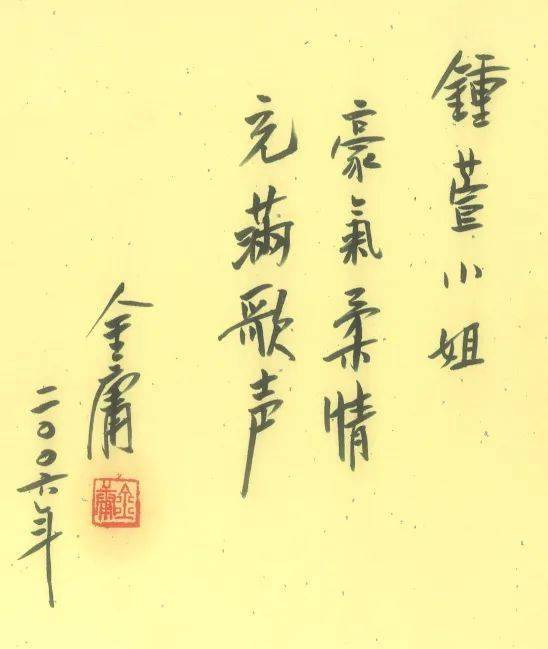 鍾萱小姐
豪氣柔情
充满歌声
金庸
二〇〇六年
金庸